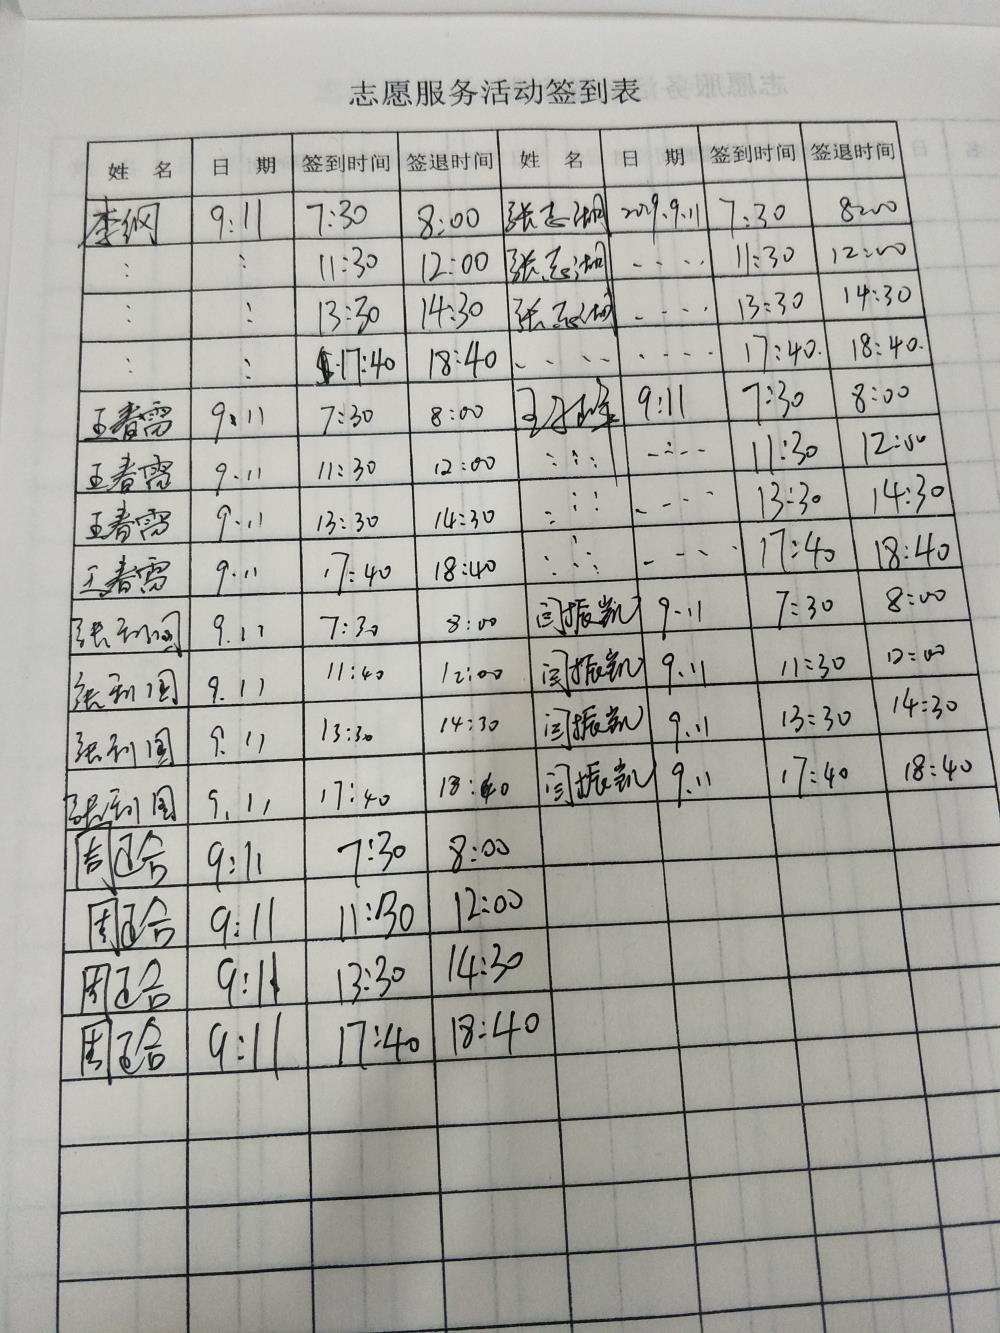 志愿服务活动签到表
姓 名 日 期 签到时间 签退时间 姓 名 日 期 签到时间 签退时间
李纲 9:11 7:30 8:00 张志湖 2019.9.11 7:30 8:00
: : 11:30 12:00 张志湖 .... 11:30 12:00
: : 13:30 14:30 张志湖 .... 13:30 14:30
: : 17:40 18:40 .... .... 17:40. 18:40.
王春雷 9.11 7:30 8:00 王 9:11 7:30 8:00
王春雷 9.11 11:30 12:00 ::: .... 11:30 12:00
王春雷 9.11 13:30 14:30 ::: .... 13:30 14:30
王春雷 9.11 17:40 18:40 ::: .... 17:40 18:40
张利国 9.11 7:30 8:00 闫振凯 9.11 7:30 8:00
张利国 9.11 11:40 12:00 闫振凯 9.11 11:30 12:00
张利国 9.11 13:30 14:30 闫振凯 9.11 13:30 14:30
张利国 9.11 17:40 18:40 闫振凯 9.11 17:40 18:40
周 合 9:11 7:30 8:00
周 合 9:11 11:30 12:00
周 合 9:11 13:30 14:30
周 合 9:11 17:40 18:40